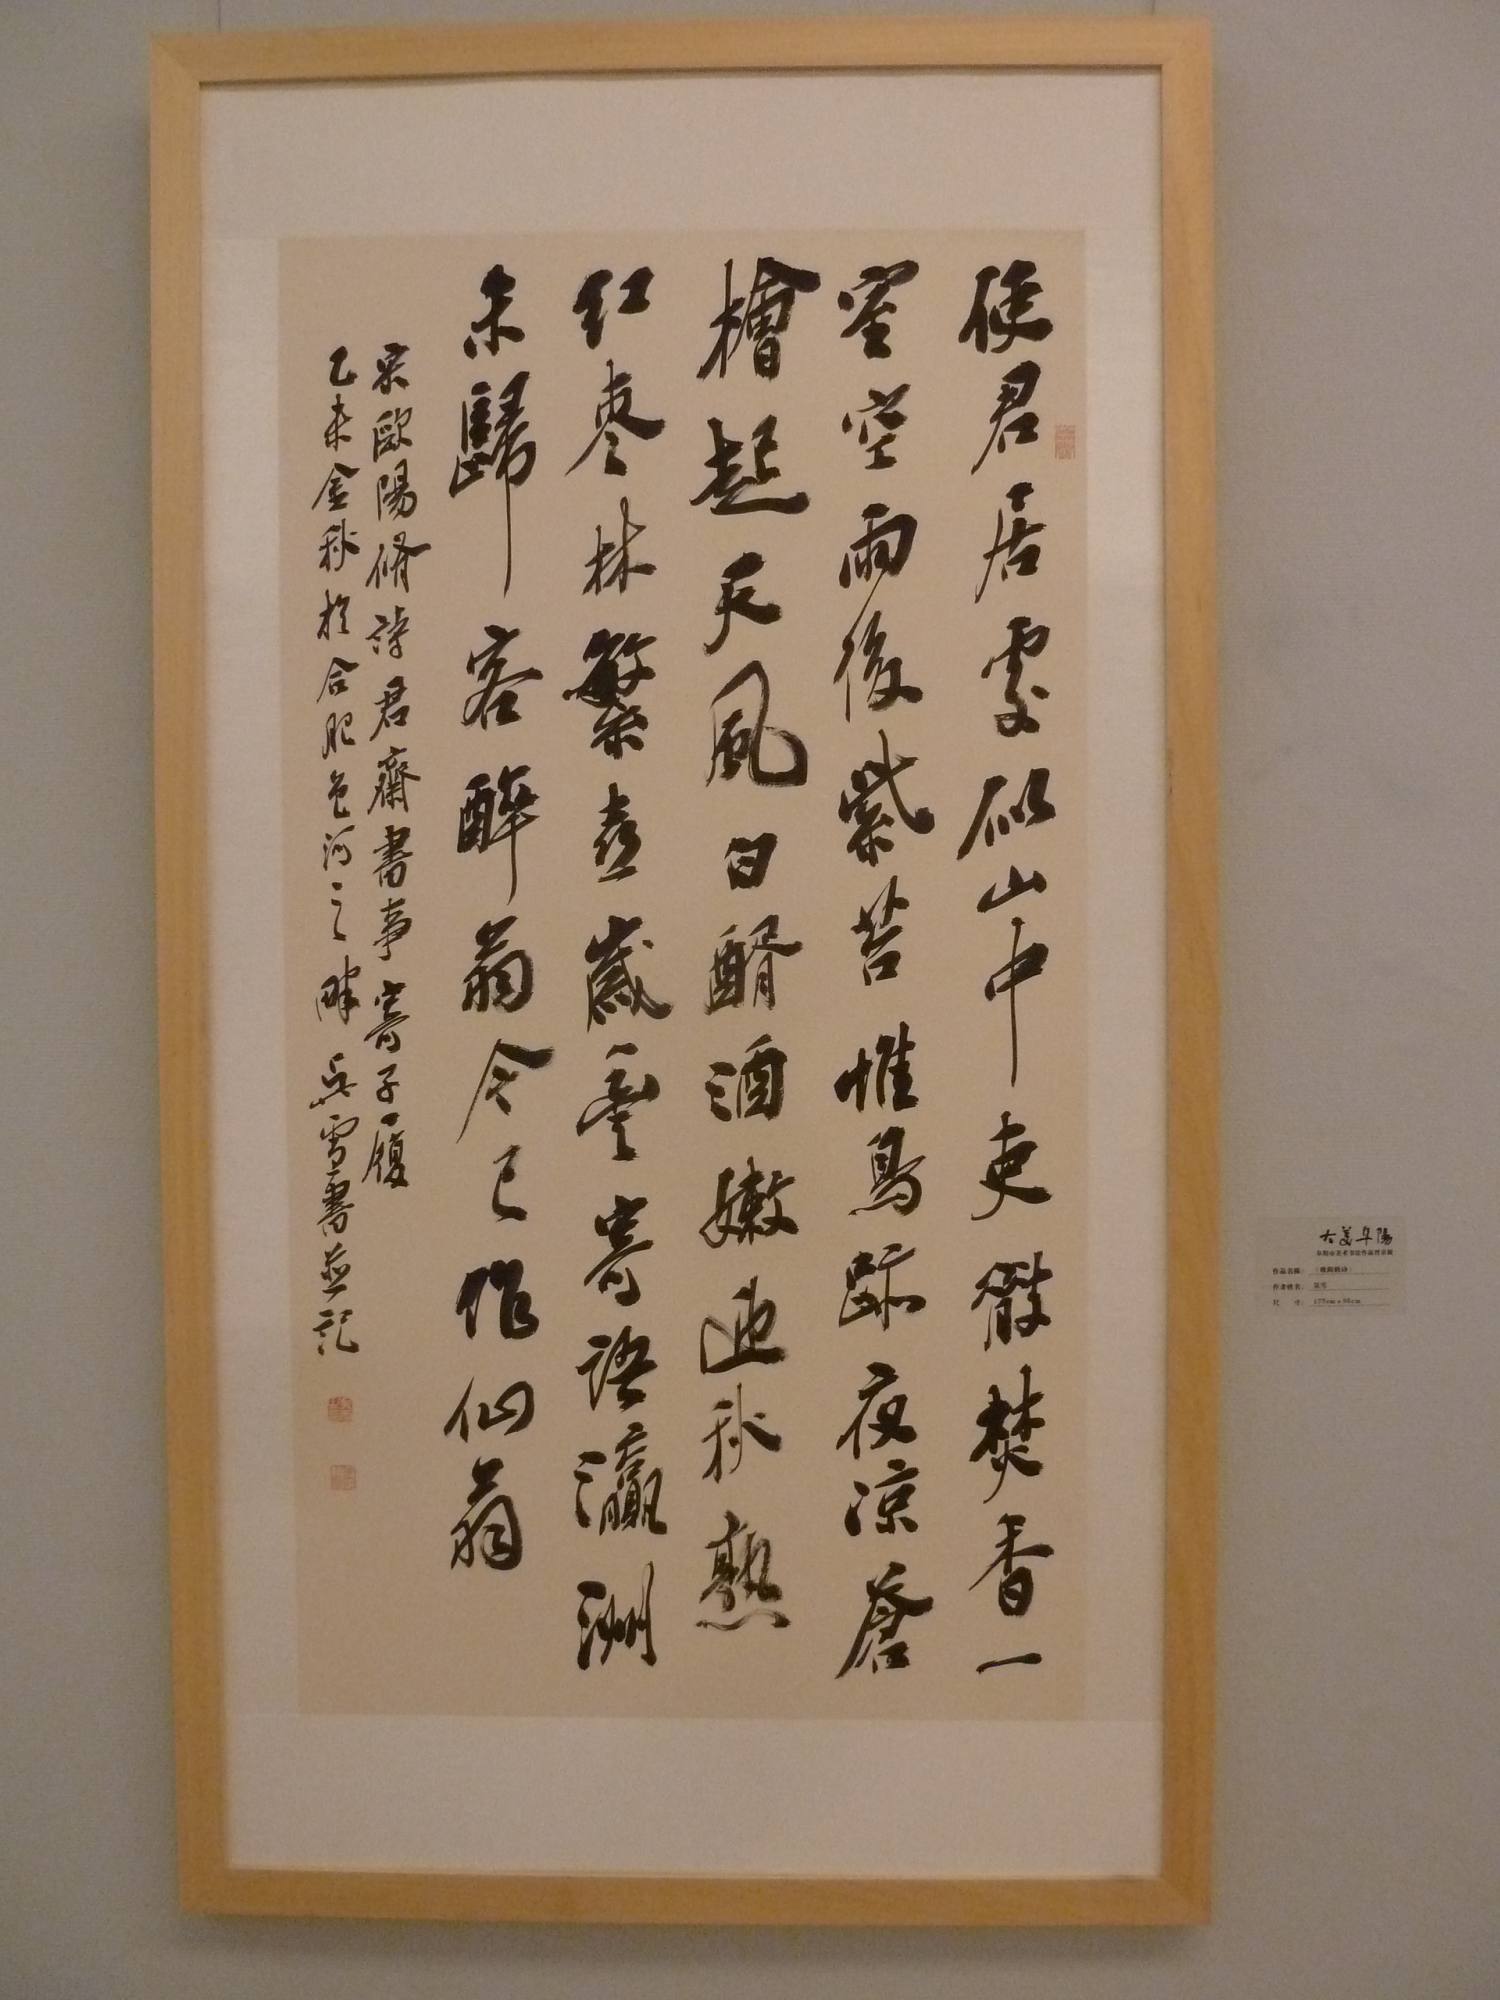 使君居處似山中吏散焚香一
室空雨後紫苔惟鳥跡夜涼蒼
檜起天風白醪酒嫩迎秋熟
紅棗林繁喜歲豐寄語瀛洲
未歸客醉翁今已作仙翁
宋歐陽脩詩君齋書事寄子履
乙未金秋於合肥包河之畔吳雪書並記
大美阜陽
作品名稱：
作者姓名：吴雪
尺 寸：